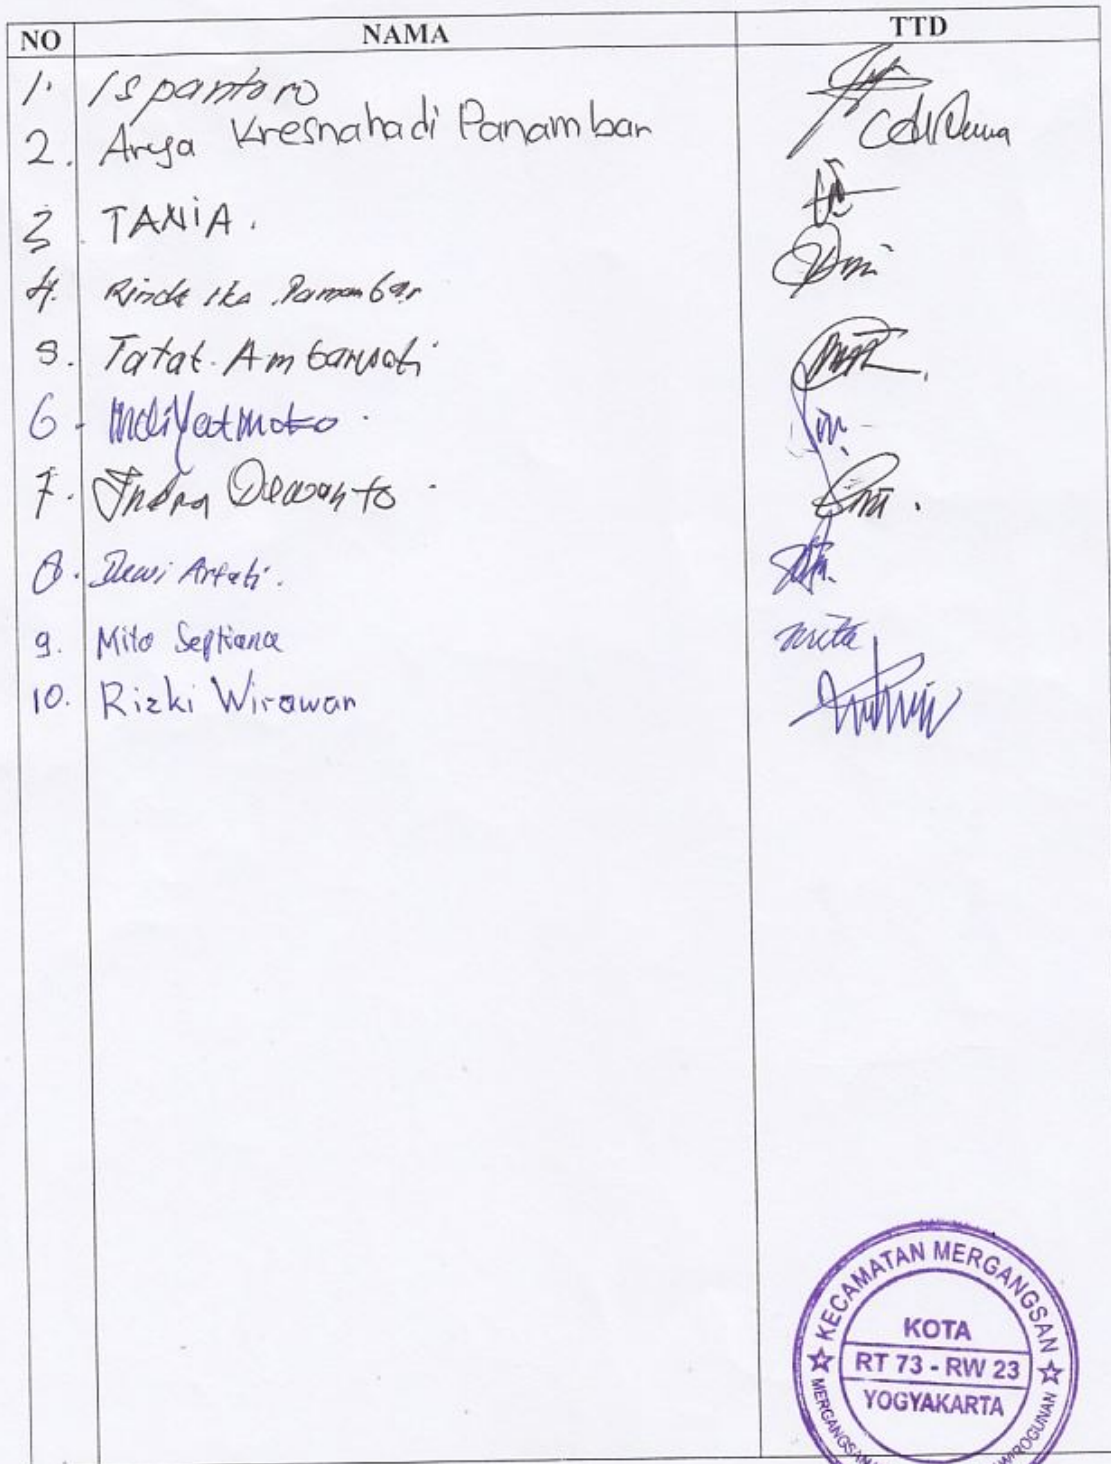 NO NAMA TTD
1. Ispantoro
2. Arya Kresnahadi Panambar
3 TANIA.
4. Rinda Ika Panambar
5. Tatat. Ambarwati
6.
7. Indra Dewanto.
8. Dewi Artati.
9. Mita Septiana mita
10. Rizki Wirawan
KECAMATAN MERGANGSAN
KOTA
RT 73 - RW 23
YOGYAKARTA